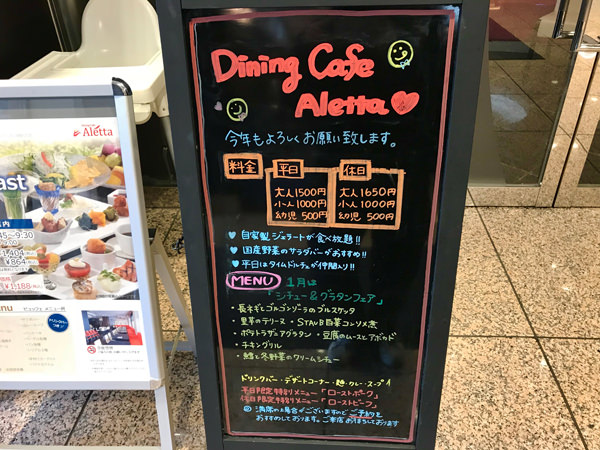 Dining Cafe
Aletta
今年もよろしくお願い致します。
料金 平日 休日
大人1500円 大人1650円
小人1000円 小人1000円
幼児 500円 幼児 500円
♥ 自家製ジェラートが食べ放題!!
♥ 国産野菜のサラダバーがおすすめ!!
♥ 平日はタイムドルチェが仲間入り!!
MENU 1月は
「シチュー&グラタンフェア」
・長ネギとゴルゴンゾーラのブルスケッタ
・里芋のテリーヌ ・STAUB白菜コンソメ煮
・ポタトラザニアグラタン ・豆腐のムースとアボカド
・チキングリル
・鱈と冬野菜のクリームシチュー
ドリンクバー・デザートコーナー・麺・カレー・スープ
平日限定特別メニュー「ローストポーク」
休日限定特別メニュー「ローストビーフ」
満席の場合がございますのでご予約を
おすすめしております。ご来店お待ちしております
Aletta
ast
案内
45~9:30
1,404
¥854
¥1,188
enu